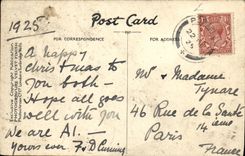 1925
Post Card
FOR CORRESPONDENCE
FOR ADDRESS
A happy
Christmas to
you both -
Hope all goes
well with you
We are A1. -
Yours ever
Mr & Madame
46 Rue de
Paris
14 ième
France